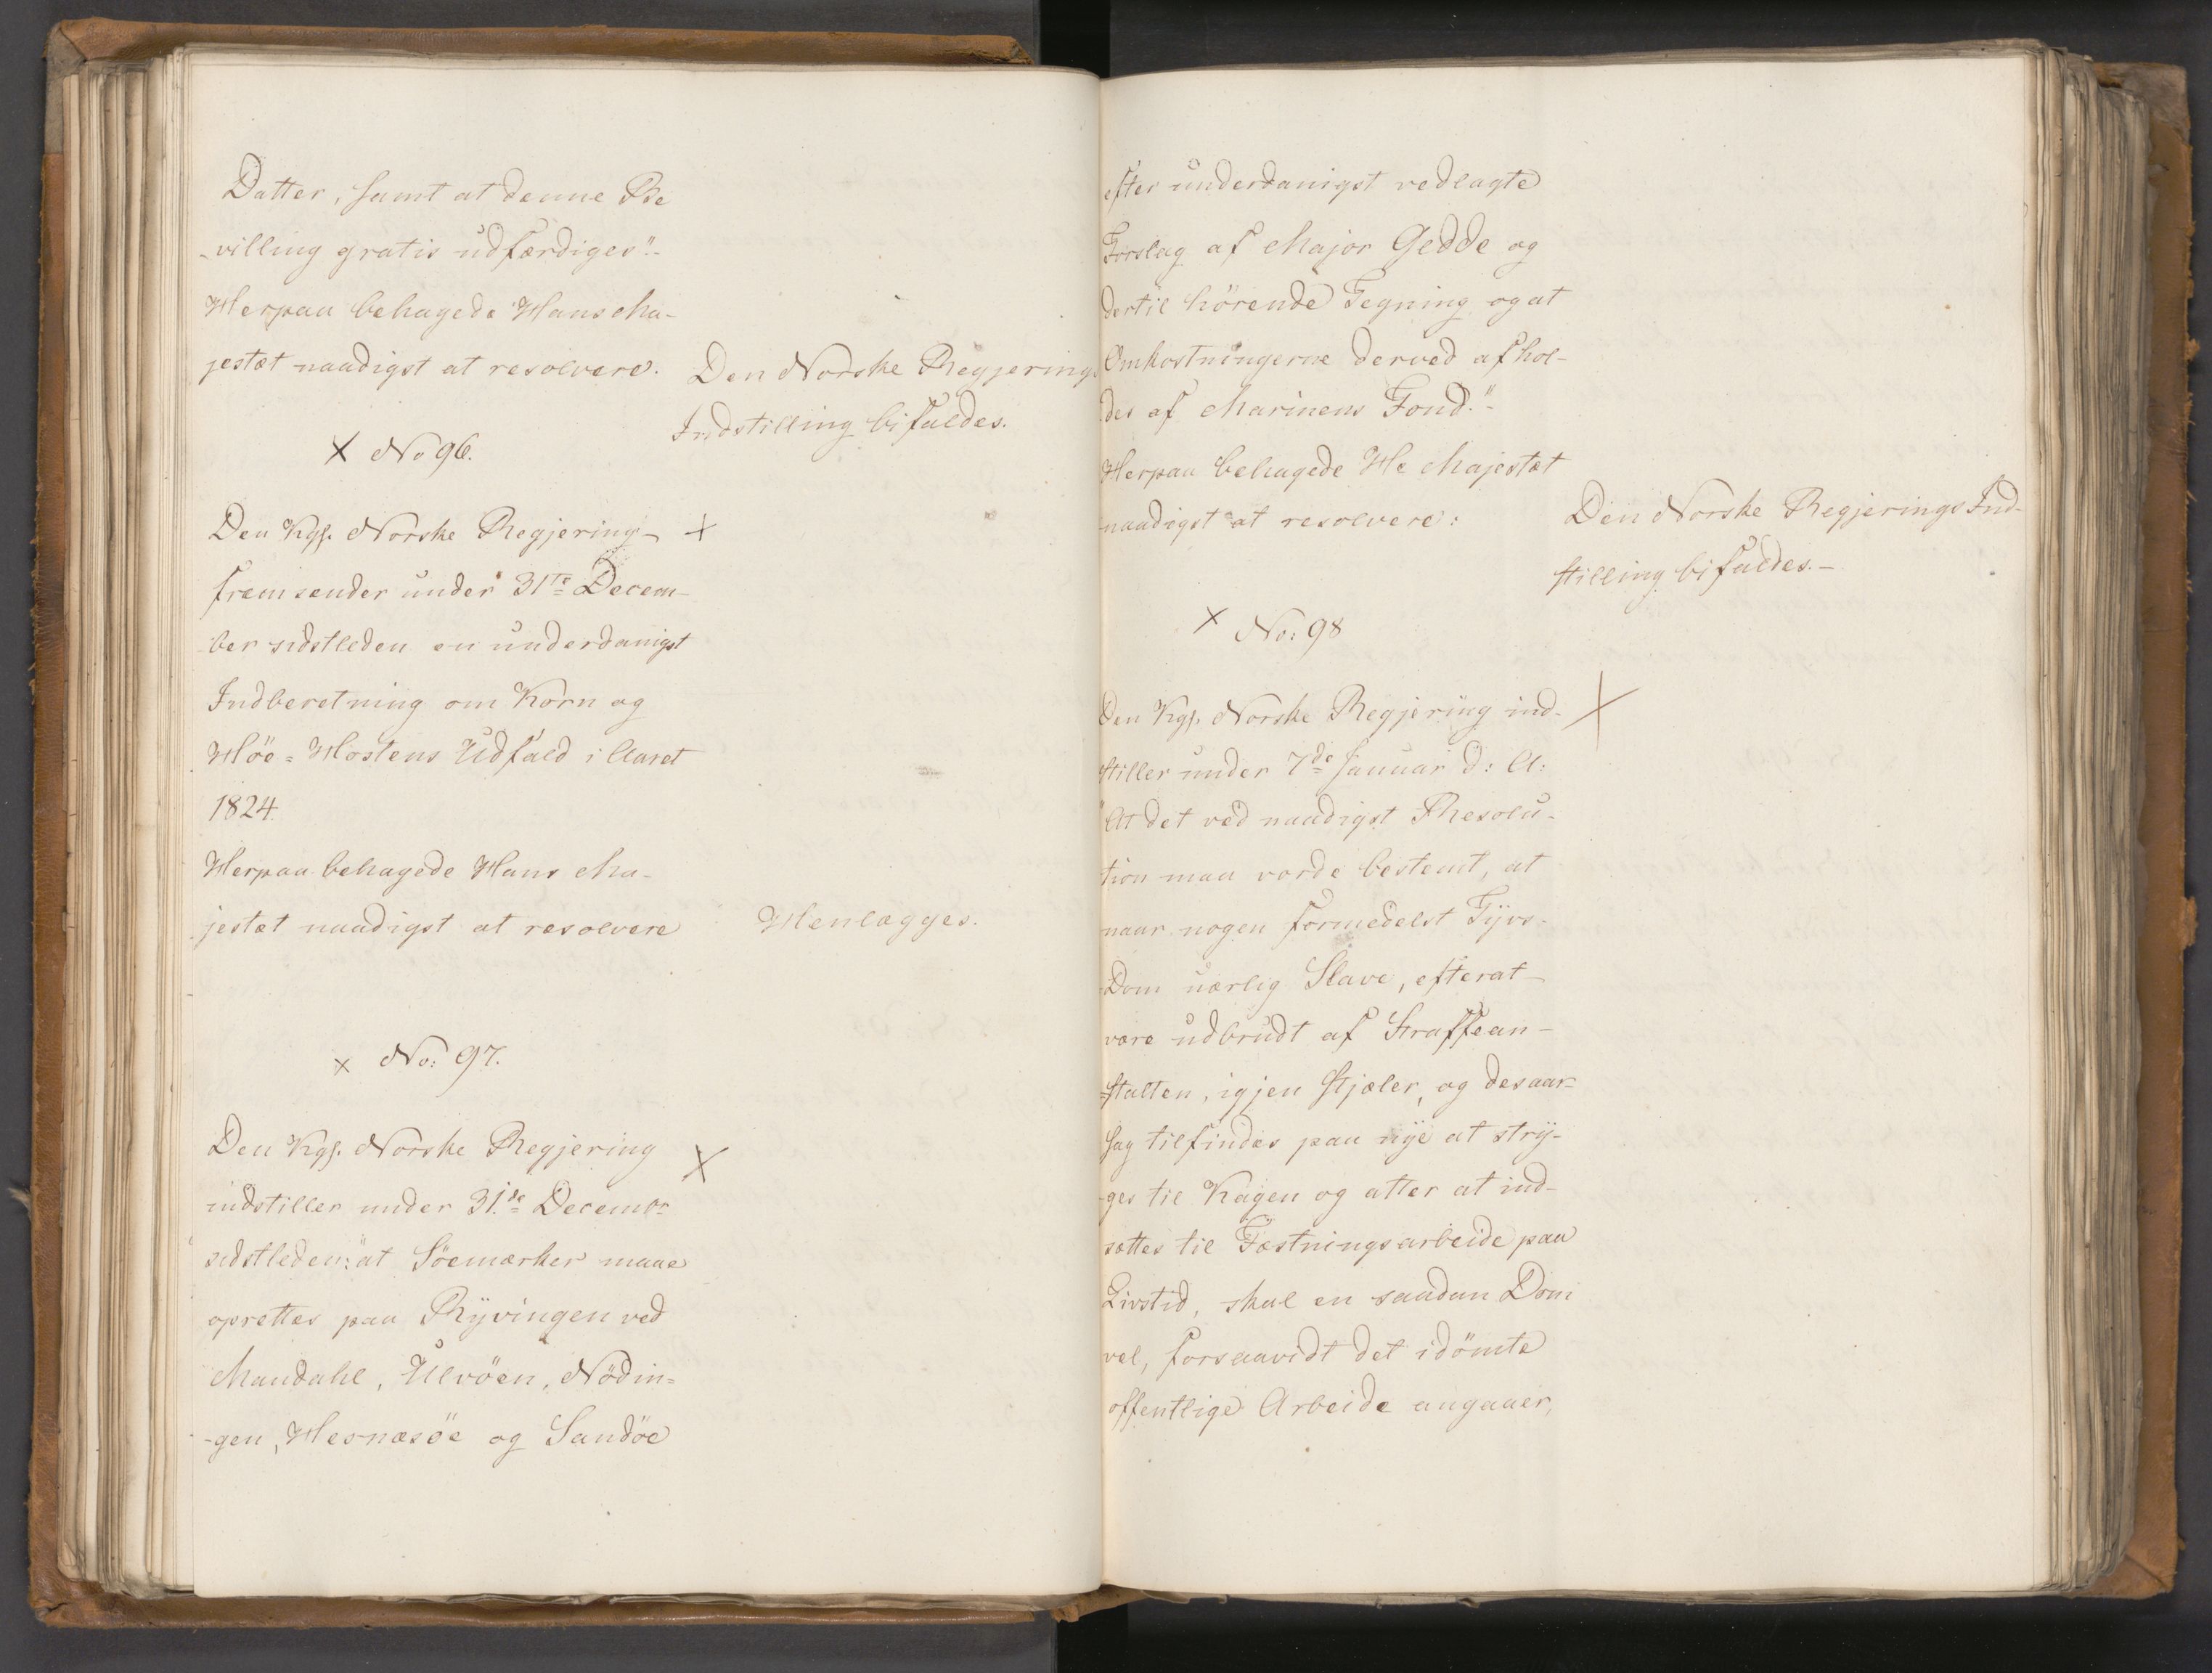 Datter, samt at denne Be
-villing gratis udfærdiges".-
Herpaa behagede Hans Ma-
jestæt naadigst at resolvere.
Den Norske Regjerings
Indstilling bifaldes.
X No 96.
Den Kgl. Norske Regjering X
fremsender under 31te Decem-
-ber sidstleden en underdanigst
Indberetning om Korn og
Höe=Höstens Udfald i Aaret
1824.
Herpaa behagede Hans Ma-
jestæt naadigst at resolvere
Henlægges.
x No: 97.
Den Kgl. Norske Regjering X
indstiller under 31de Decembr
sidstleden: "at Söemærker maae
oprettes paa Ryvingen ved
Mandahl, Ulvöen, Nödin=
-gen, Hesnæsöe og Sandöe
efter underdanigst vedlagte
Forslag af Major Gedde og
dertil hörende Tegning, og at
Omkostningerne derved afhol-
des af Marinens Fond."-
Herpaa behagede Hs Majestæt
naadigst at resolvere:
Den Norske Regjerings Ind-
stilling bifaldes.-
X No: 98
Den Kgl. Norske Regjering ind- X
stiller under 7de Januar d: A:
"At det ved naadigst Resolu-
tion maa vorde bestemt, at
naar nogen formedelst Tyvs-
Dom uærlig Slave, efterat
være udbrudt af Straffean-
=stalten, igjen stjæler, og desaar-
sag tilfindes paa nye at stry-
-ges til Kagen og atter at ind-
sættes til Fæstningsarbeide paa
Livstid, skal en saadan Dom
vel, forsaavidt det idömte
offentlige Arbeide angaaer,